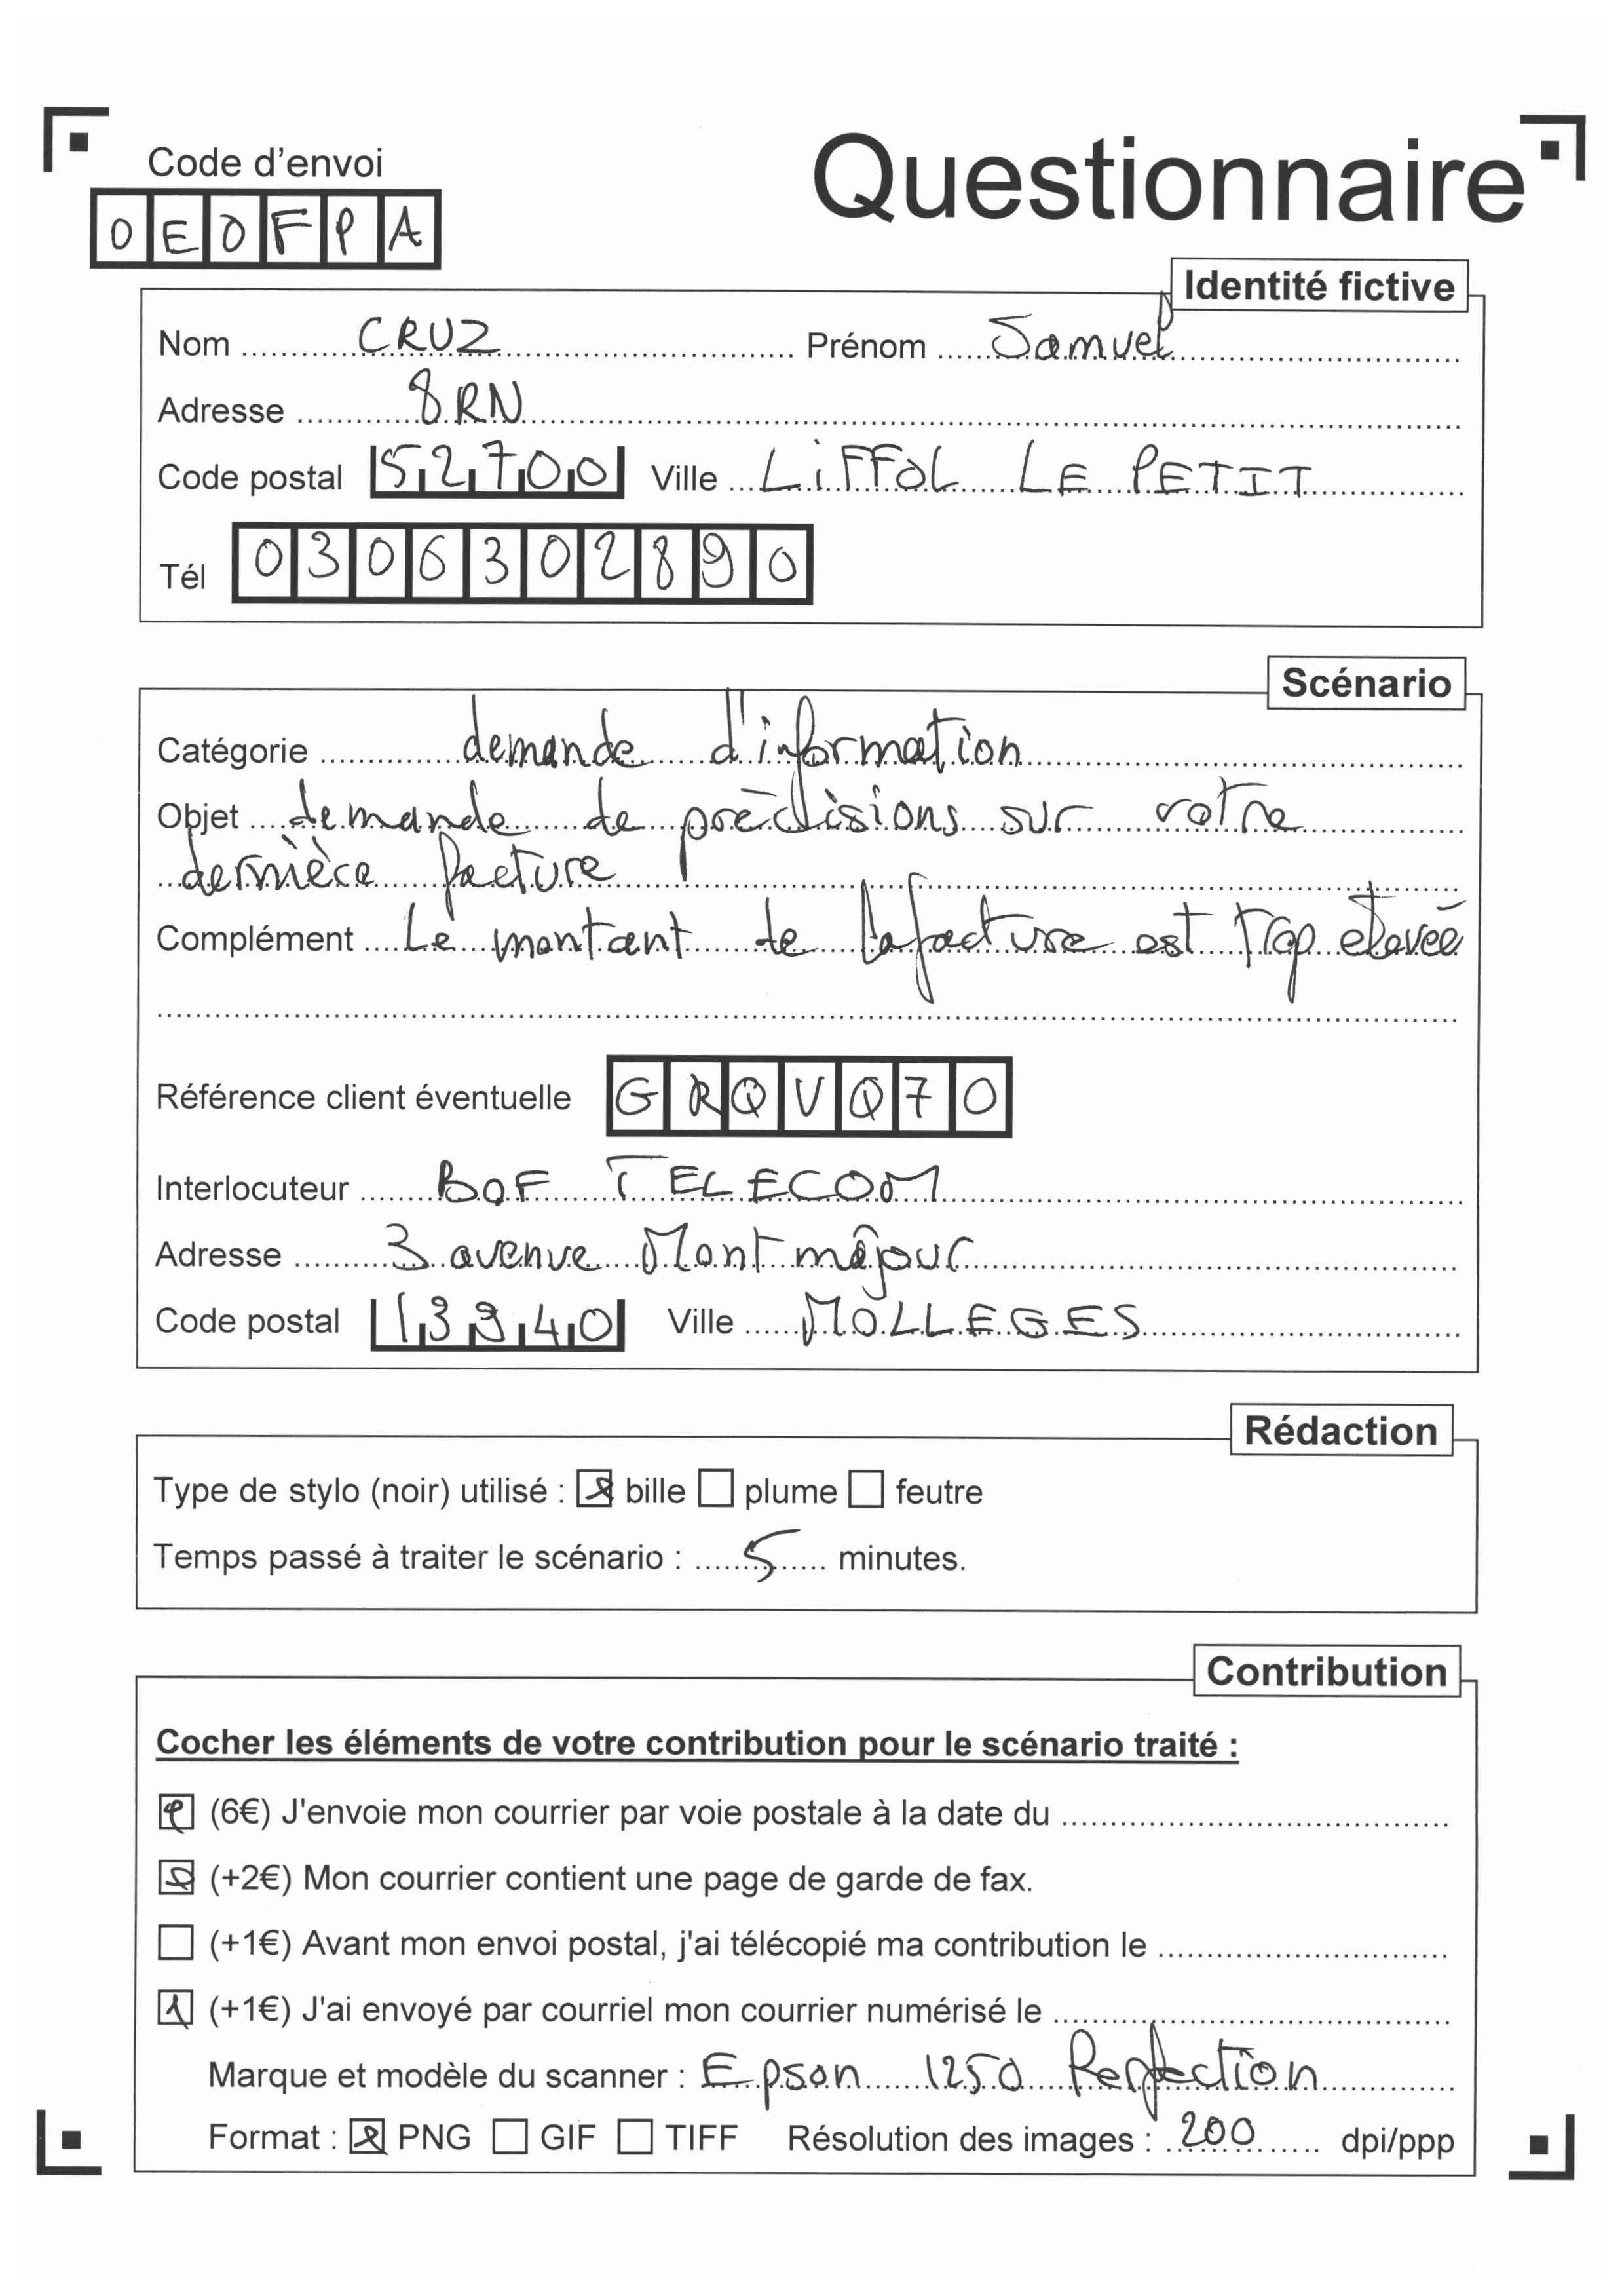 Code d'envoi
Questionnaire
OEOFPA
Identité fictive
Nom CRUZ Prénom Samuel
Adresse 8 RN
Code postal 52700 Ville LiFFOL LE PETIT
Tél 0306302890
Scénario
Catégorie demande d'information
Objet demande de précisions sur votre
dernière facture
Complément Le montant de la facture est trop élevée
Référence client éventuelle GRQVQ70
Interlocuteur BOF TELECOM
Adresse 3 avenue Montmâjour
Code postal 13940 Ville MOLLEGES
Rédaction
Type de stylo (noir) utilisé : bille plume feutre
Temps passé à traiter le scénario : 5 minutes.
Contribution
Cocher les éléments de votre contribution pour le scénario traité :
(6€) J'envoie mon courrier par voie postale à la date du
(+2€) Mon courrier contient une page de garde de fax.
(+1€) Avant mon envoi postal, j'ai télécopié ma contribution le
(+1€) J'ai envoyé par courriel mon courrier numérisé le
Marque et modèle du scanner : Epson 1250 Perfection
Format : PNG GIF TIFF Résolution des images : 200 dpi/ppp